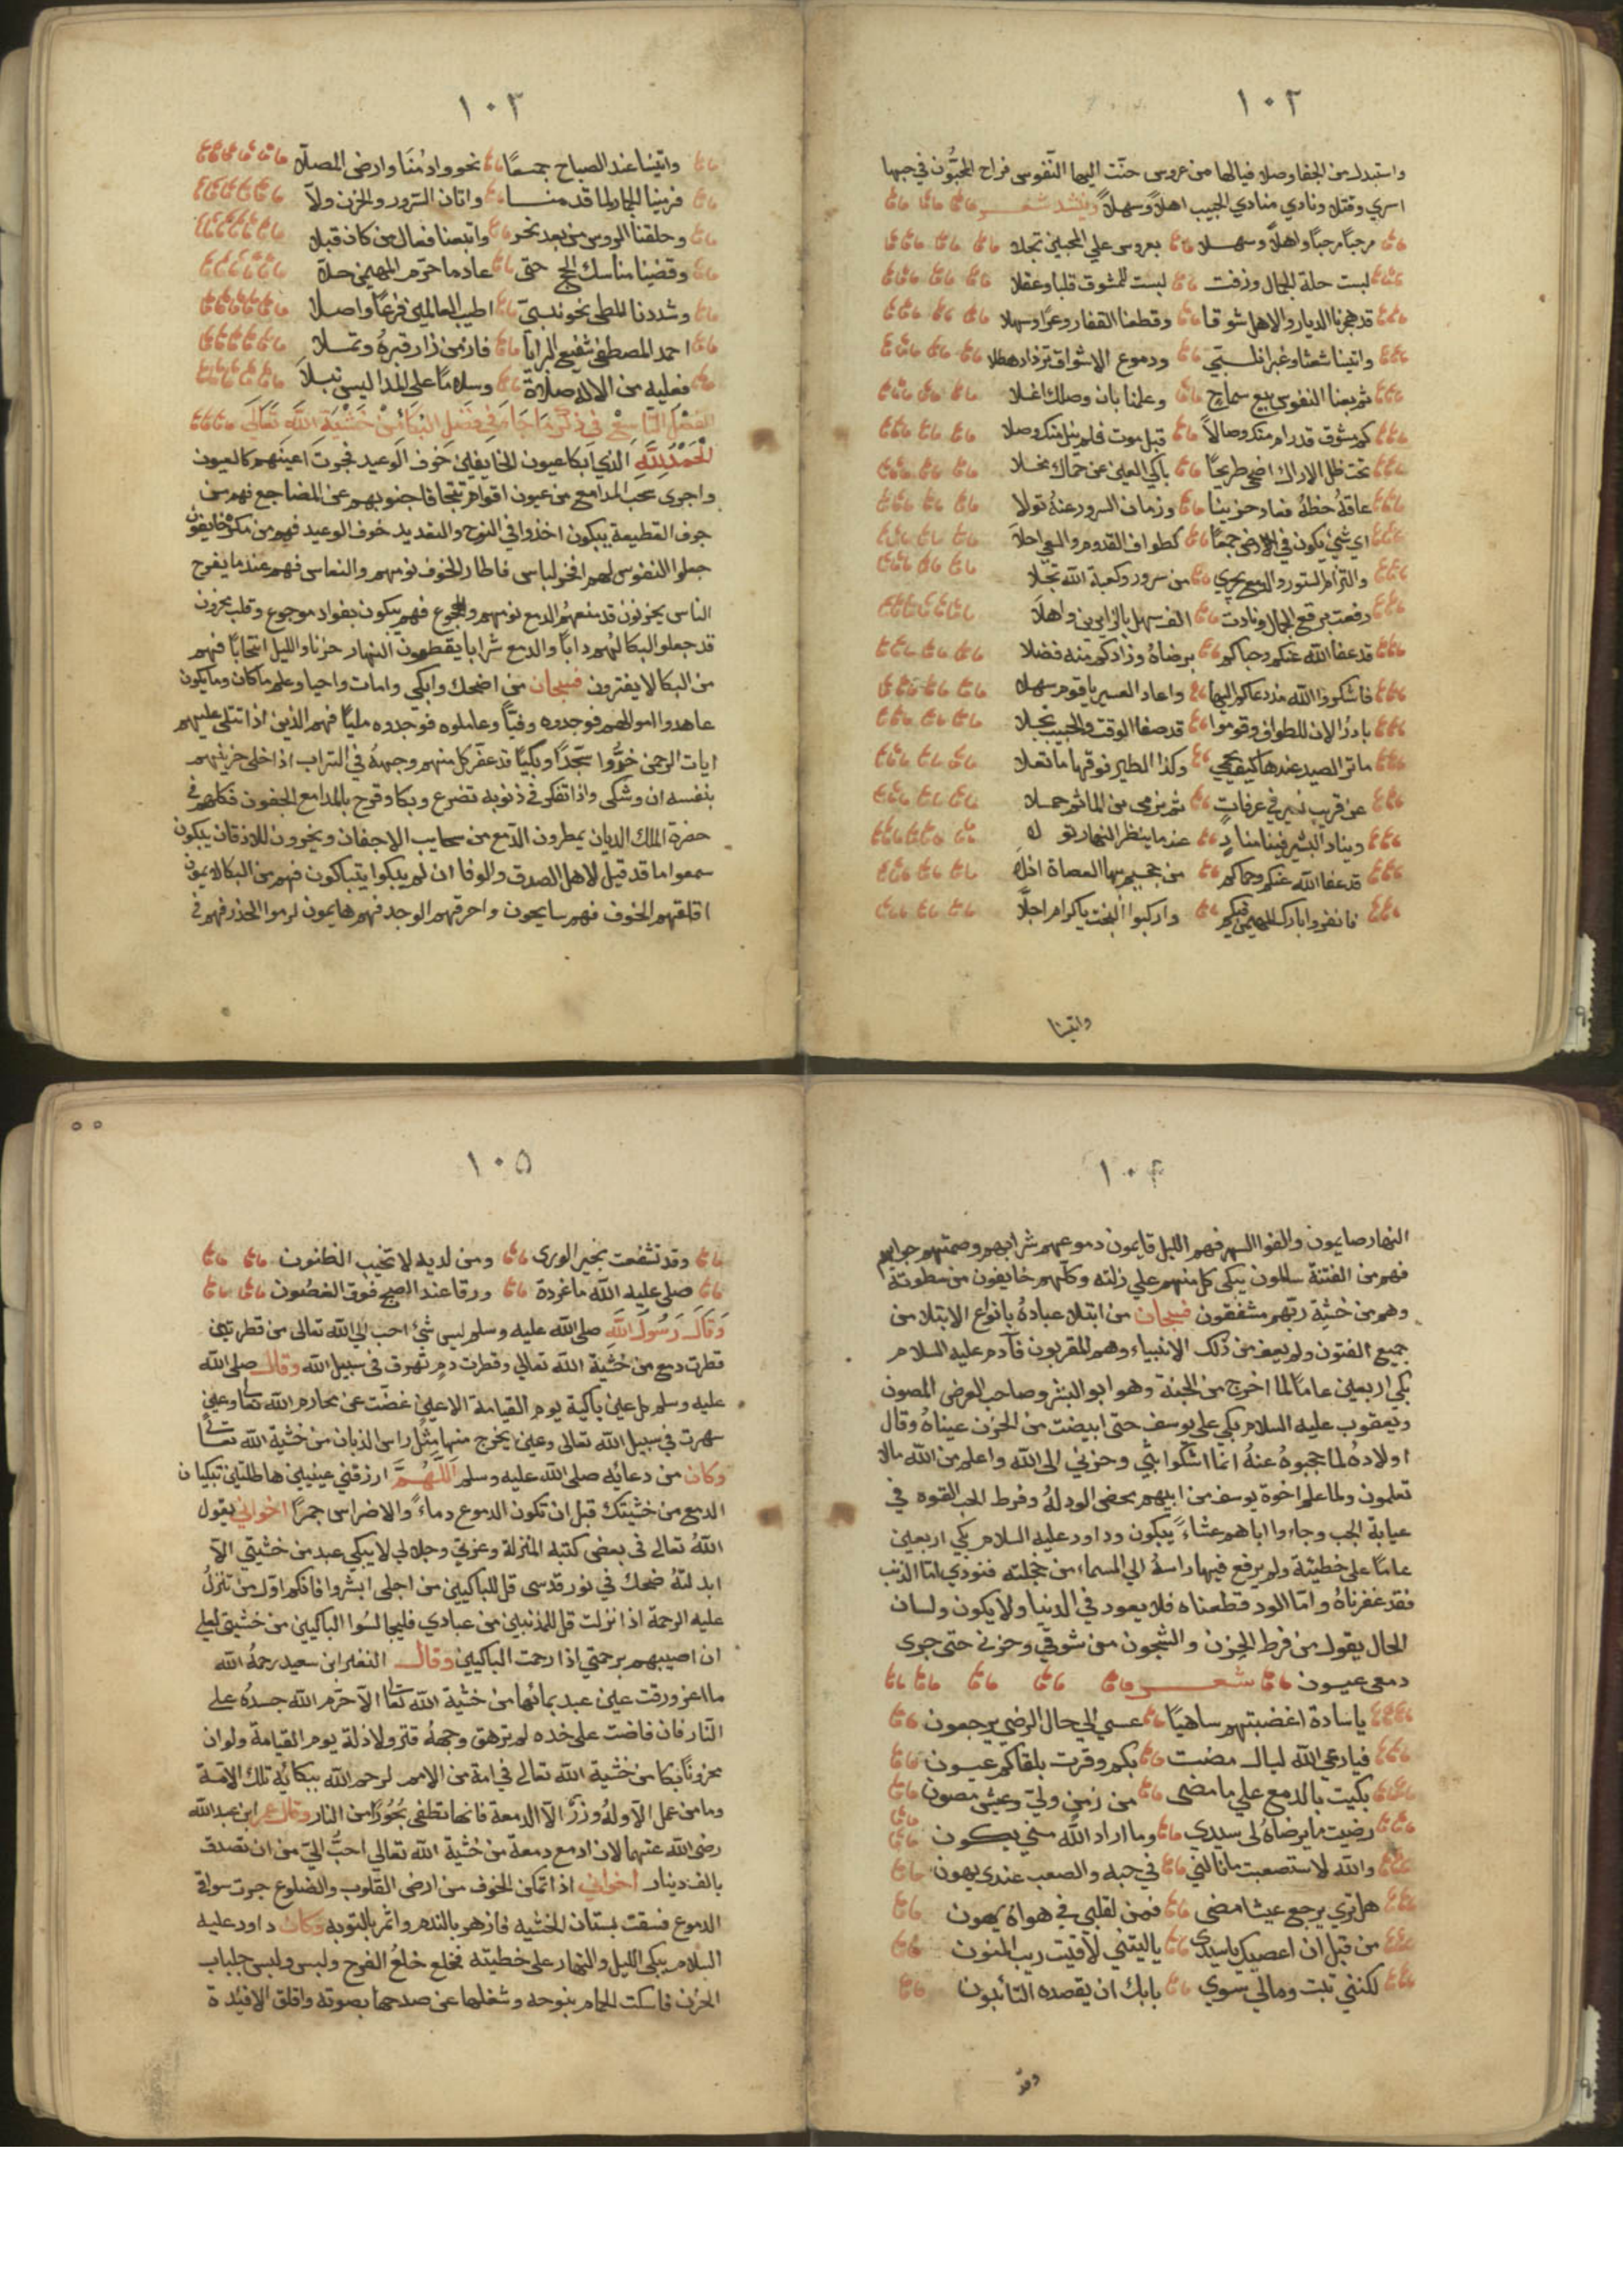 ١٠٢
واستبدلت من الجفا وصلا فيالها من عروس حنّت اليها النّفوس فراح المحبّون في حبها
اسري وقتلا ونادي منادي الحبيب اهلاً وسهلاً وينشد شعر
مرحباً مرحباً واهلاً وسهلا بعروس علي المحبين تجلا
لبست حلة الجمال وزفت لبست للمشوق قلبا وعقلا
قد هجرنا الديار والاهل شوقا وقطعنا القفار وعرا وسهلا
واتينا شعثا وغبرا نلبي ودموع الاشواق تزداد هطلا
ثم بعنا النفوس بيع سماح وعلمنا بان وصلك اغلا
كم مشوق قد رام منك وصالاً قبل موت فلم ينل منك وصلا
تحت ظل الاراك اضحي طريحًا باكي العين عن حماك مخلا
عاقهُ حظهُ فعاد حزينا وزمان السرور عنهُ تولا
اي شي يكون في الارض جمعًا كطواف القدوم والسعي احلا
والتزام الستور والدمع يجري من سرور وكعبة الله تجلا
رفعت برقع الجمال ونادت الف سهل بالزايرين واهلا
قد عفا الله عنكم وحباكم برضاهُ وزادكم منه فضلا
فاشكروا الله مذ دعاكم اليها واعاد العسير يا قوم سهلا
بادرُ الان للطواف وقوموا قد صفا الوقت والحبيب تجلا
ما تر الصيد عندها كيف يحمي وكذا الطير فوقها ما تعلا
عن قريب نسير في عرفات ثم نرمي من الماثم حملا
وينادِ البشير فينا منادٍ عندما ينظر النهار تولا
قد عفا الله عنكم وحماكم من جحيم بها العصاة اذلا
فانفروا بارك المهيمن فيكم واركبوا البخت ياكرام اجلاً
واتينا
١٠٣
واتينا عند الصباح جمعًا نحو وادِ مُنَا وارض المصلّا
فرمينا الجمار لما قدمنا واتان السّرور والحزن ولّا
وحلقنا الروس من بعد نحر واتبعنا فعال من كان قبلا
وقضينا مناسك الحج حتى عاد ما حرّم المهيمن حلاّ
وشددنا المطي نحو نبيّ اطيب العالمين فرعًا واصلاً
احمد المصطفي شفيع البرايا فاز من زار قبرهُ وتملا
فعليه من الاله صلاةً وسلامًا على المدا ليس تبلا
الفصل التاسع في ذكر ما جا في فضل البكاء من خشية الله تعالى
الحَمْدُ لِلَّهِ الذي ابكا عيون الخايفين خوف الوعيد فجرت اعينهم كالعيون
واجري سحب المدامع من عيون اقوام تتجافا جنوبهم عن المضاجع فهم من
خوف القطيعة يبكون اخذوا في النوح والتعديد خوف الوعيد فهم من مكره خايفون
جعلوا النفوس لهم افخر لباس فاطار الخوف نومهم والنعاس فهم عند ما يفرح
الناس يحزنون قد منعهمُ الدمع نومهم والهجوع فهم يبكون بفواد موجوع وقلب محزون
قد جعلوا البكا لهُم دابًا والدمع شرابا يقطعون النهار حزنا والليل انتحابًا فهم
من البكا لا يفترون فسبحان من اضحك وابكي وامات واحيا وعلم ما كان وما يكون
عاهدوا مولاهم فوجدوه وفيًّا وعاملوه فوجدوه مليًا فهم الذين اذا تتلي عليهم
ايات الرحمن خرُّوا سجّدًا وبكيًّا قد عفّر كل منهم وجههُ في التراب اذا خلي حزينهم
بنفسه ان وشكي واذا تفكر في ذنوبه تضرع وبكا وقرح بالمدامع الجفون فكلهم في
حضرة الملك الديان يمطرون الدّمع من سحايب الاجفان ويخرون للاذقان يبكون
سمعوا ما قد قيل لاهل الصدق والوفا ان لم يبكوا يتباكون فهم من البكا لا يموتن
اقلقهم الخوف فهم سايحون واحرقهم الوجد فهم هايمون لزموا الحذر فهم في
١٠٤
النهار صايمون والفوا السهر فهم الليل قايمون دموعهم شرابهم وصمتهم جوابهم
فهم من الفتنة سالمون يبكي كل منهم علي زلته وكلهم خايفون من سطوته
وهم من خشية ربهم مشفقون فسبحان من ابتلا عبادهُ بانواع الابتلا من
جميع الفتون ولم يعف من ذلك الانبياء وهم المقربون فآدم عليه السلام
بكي اربعين عاماً لما اخرج من الجنة وهو ابو البشر وصاحب العرض المصون
ويعقوب عليه السلام بكي على يوسف حتى ابيضت من الحزن عيناهُ وقال
اولادهُ لما حجبوهُ عنهُ انما اشكوا بثّي وحزني الى الله واعلم من الله مالا
تعلمون ولما علم اخوة يوسف من ابيهم محض الود لهُ وفرط الحب القوه في
غيابة الجب وجاءوا اباهم عشاءً يبكون وداود عليه السلام بكي اربعين
عامًا علي خطيئة ولم يرفع فيها راسهُ الي السماء من خجلته فنودي امّا الذنب
فقد غفرناهُ وامّا الود قطعناه فلا يعود في الدنيا ولا يكون ولسان
الحال يقول من فرط الحزن والشجون من شوقي وحزني حتى جري
دمعي عيون شعر
يا سادة اغضبتهم ساهيًا عسي الي حال الرضي يرجعون
فيا رعي الله ليال مضت بكم وقرت بلقاكم عيون
بكيت بالدمع علي ما مضي من زمنٍ وليّ وعيش مصون
رضيت ما يرضاهُ لي سيدي وما اراد الله مني يكون
والله لا استصعبت ما نالني في حبه والصعب عندي يهون
هل تري يرجع عيشا مضي فمن لقلبي في هواهُ يهون
من قبل ان اعصيك يا سيدي ياليتني لاقيت ريب المنون
لكنني تبت ومالي سوي بابك ان يقصده التائبون
وقد
١٠٥
وقد تشفعت بخير الورى ومن لديه لا تخيب الظنون
صلي عليه الله ما غردة ورقا عند الصبح فوق الغصُون
وَقَالَ رَسُولَ اللَّهِ صلى الله عليه وسلم ليس شيُ احب الي الله تعالى من قطرتين
قطرت دمع من خشية الله تعالي وقطرت دمٍ تهرق في سبيل الله وقال صلى الله
عليه وسلم كل عين باكية يوم القيامة الا عين غضّت عن محارم الله تعالى وعين
سهرت في سبيل الله تعالى وعين يخرج منها مثل راس الذبان من خشية الله تعالى
وكان من دعائه صلى الله عليه وسلم اللَّهُمَّ ارزقني عينين هاطلتين تبكيان
الدمع من خشيتك قبل ان تكون الدموع دماءً والاضراس جمرًا اخواني يقول
اللهُ تعالى في بعض كتبه المنزلة وعزتي وجلالي لا يبكي عبد من خشيتي الآ
ابدلتهُ ضحك في نور قدسي قل للباكيين من اجلي ابشروا فانكم اوّل من تنزلُ
عليه الرحمة اذا نزلت قل للمذنبين من عبادي فليجالسُوا الباكيين من خشيتي لعلي
ان اصيبهم برحمتي اذا رحمت الباكيين وقال النضر ابن سعيد رحمهُ الله
ما اغرورقت عين عبد بمائها من خشية الله تعالى الاّ حرّم الله جسدهُ علي
النّار فان فاضت علي خده لم ترهق وجههُ قتر ولا ذلة يوم القيامة ولو ان
محزونًا بكا من خشية الله تعالى في امة من الامم لرحم الله ببكائه تلك الامّة
وما من عمل الاّ ولهُ وزنٌ الاّ الدمعة فانها تطفي بُحُورًا من النار وقال عمر ابن عبد الله
رضي الله عنهما لان ادمع دمعة من خشية الله تعالي احبُّ اليّ من ان تصدق
بالف دينار اخواني اذا تمكن الخوف من ارض القلوب والضلوع جرت سواقي
الدموع فسقت بستان الخشيه فازهر بالندم واثمر بالتوبه وكان داود عليه
السلام يبكي الليل والنهار علي خطيئته فخلع خلعُ الفرح ولبس ولبس جلباب
الحزن فاسكت الحمام بنوحه وشغلها عن صدحها بصوته واقلق الافئدة